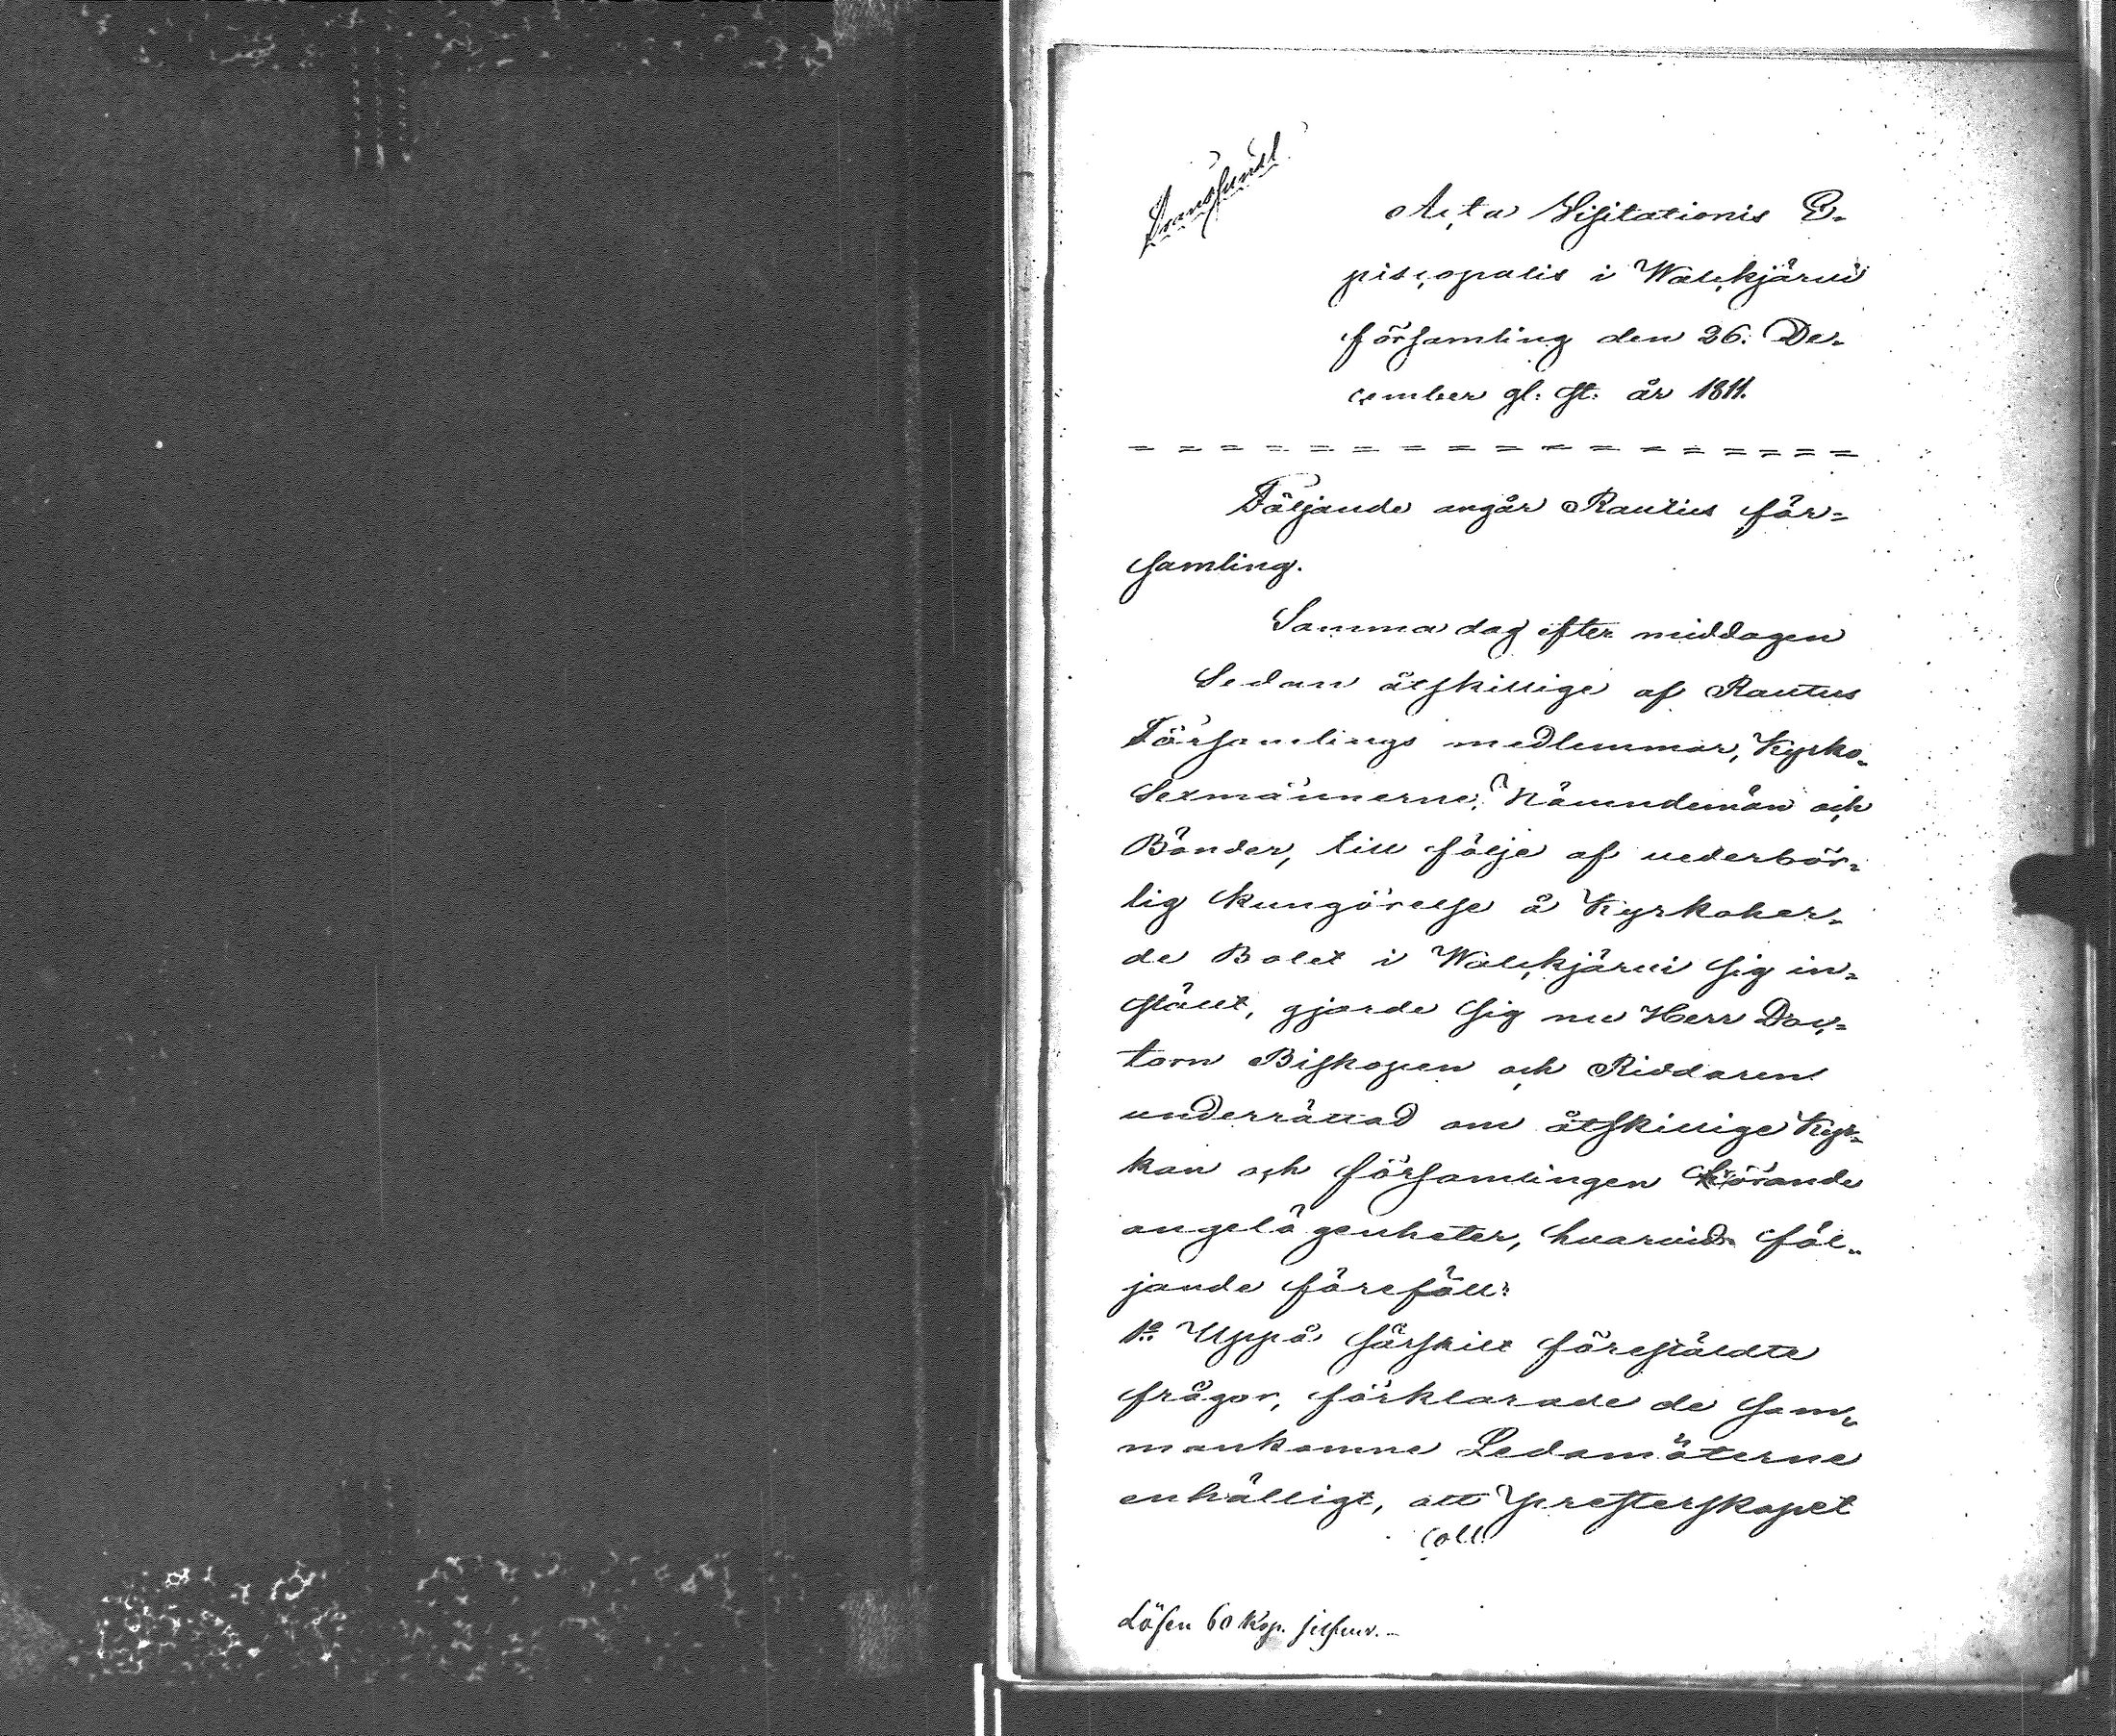 Transsumt
Acta Visitationis E-
piscopalis i Walckjärvi
församling den 26. De-
cember gl: st: år 1811.
= = = = = = = = = = = = = = = = =
Följande angår Rautus för=
samling.
Samma dag efter middagen
Sedan åtskillige af Rautus
Församlings medlemmar, Kyrko-
Sexmännerne, Nämndemän och
Bönder, till följe af vederbör-
lig kungörelse å Kyrkoher-
de Bolet i Walckjärvi sig in-
stält, gjorde sig nu Herr Doc-
torn Biskopen och Riddaren
underrättad om åtskillige Kyr-
kan och församlingen rörande
angelägenheter, hvarvid föl-
jande förefäll:
1o Uppå särskilt förestäldte
frågor, förklarade de sam-
mankomne Ledamöterne
enhälligt, att Presterskapet
Coll.
Lösen 60 Kop. silfver.-